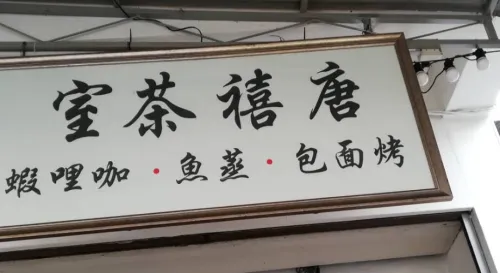 唐禧茶室
烤面包·蒸魚·咖哩蝦